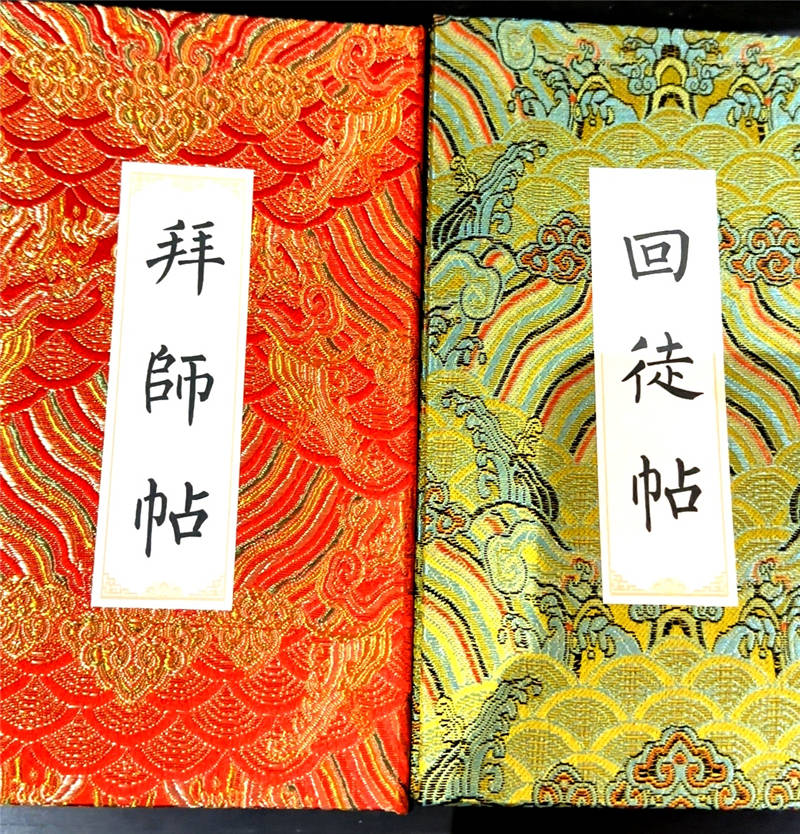 拜師帖
回徒帖